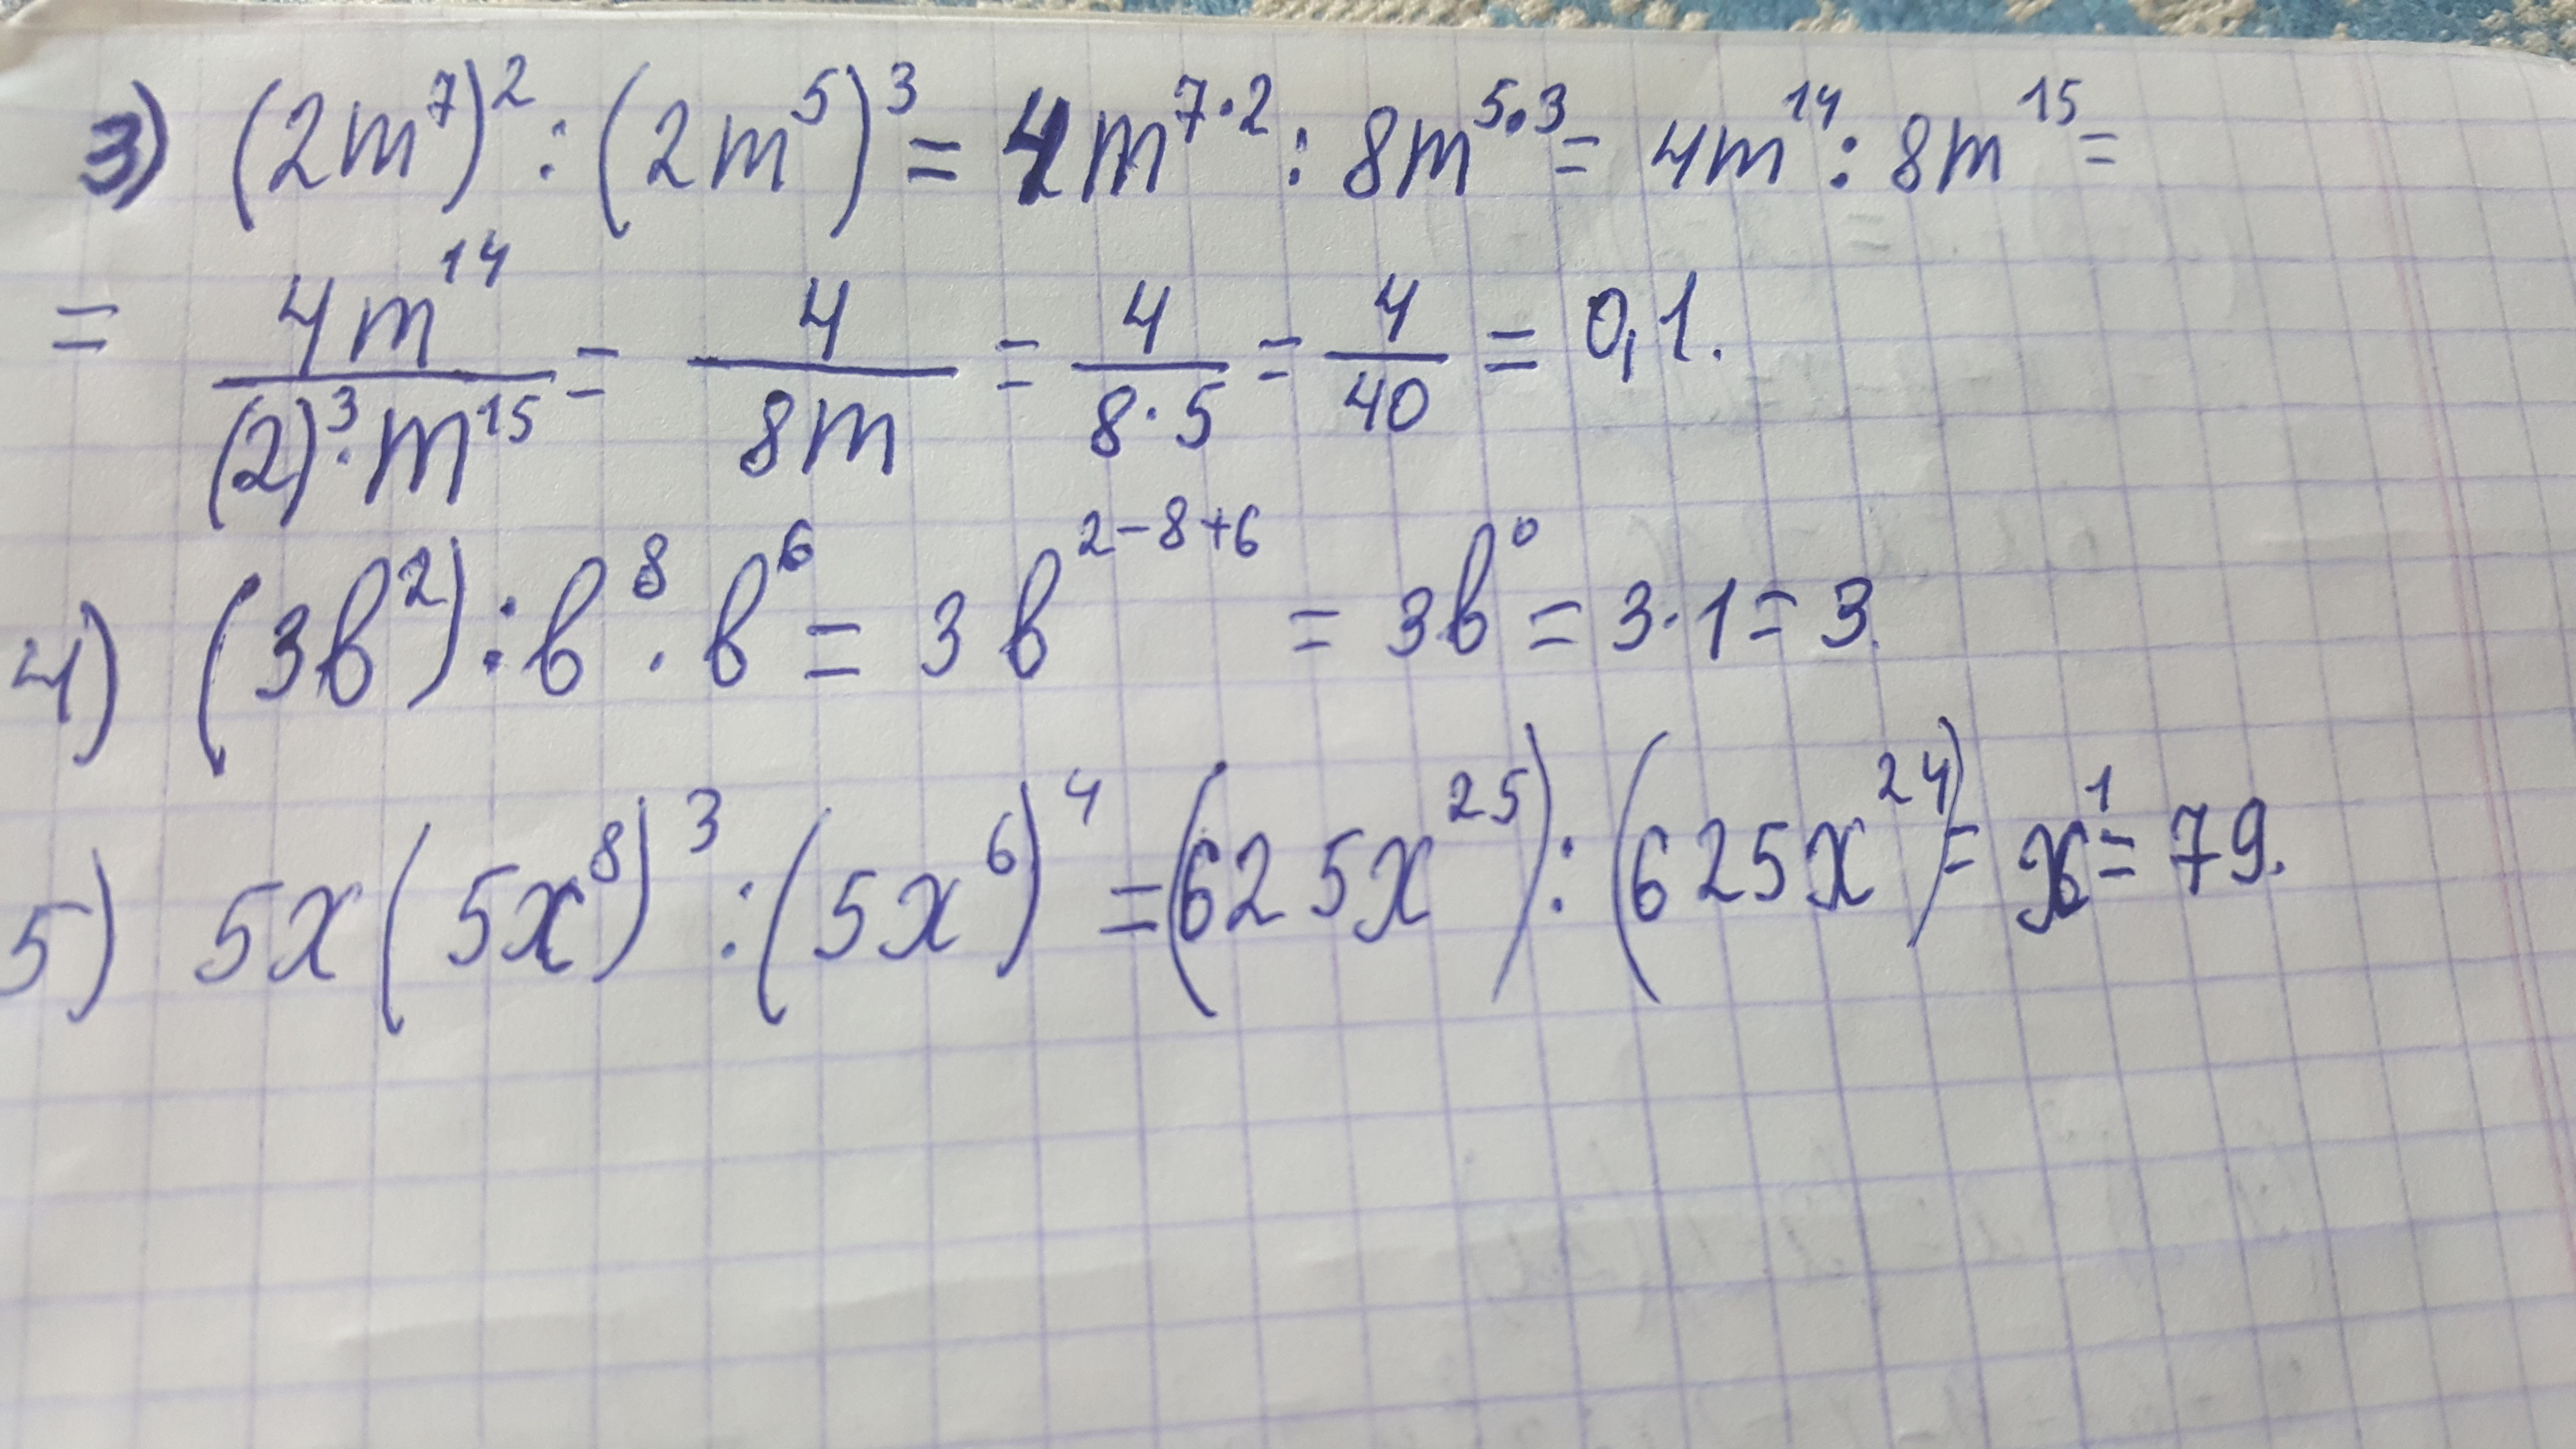 3) (2m⁷)² : (2m⁵)³ = 4m⁷·² : 8m⁵·³ = 4m¹⁴ : 8m¹⁵ =
= 4m¹⁴/((2)³·m¹⁵) = 4/(8m) = 4/(8·5) = 4/40 = 0,1.
4) (3b²) : b⁸ · b⁶ = 3b²⁻⁸⁺⁶ = 3b⁰ = 3·1 = 3.
5) 5x(5x⁸)³ : (5x⁶)⁴ = (625x²⁵) : (625x²⁴) = x¹ = 79.